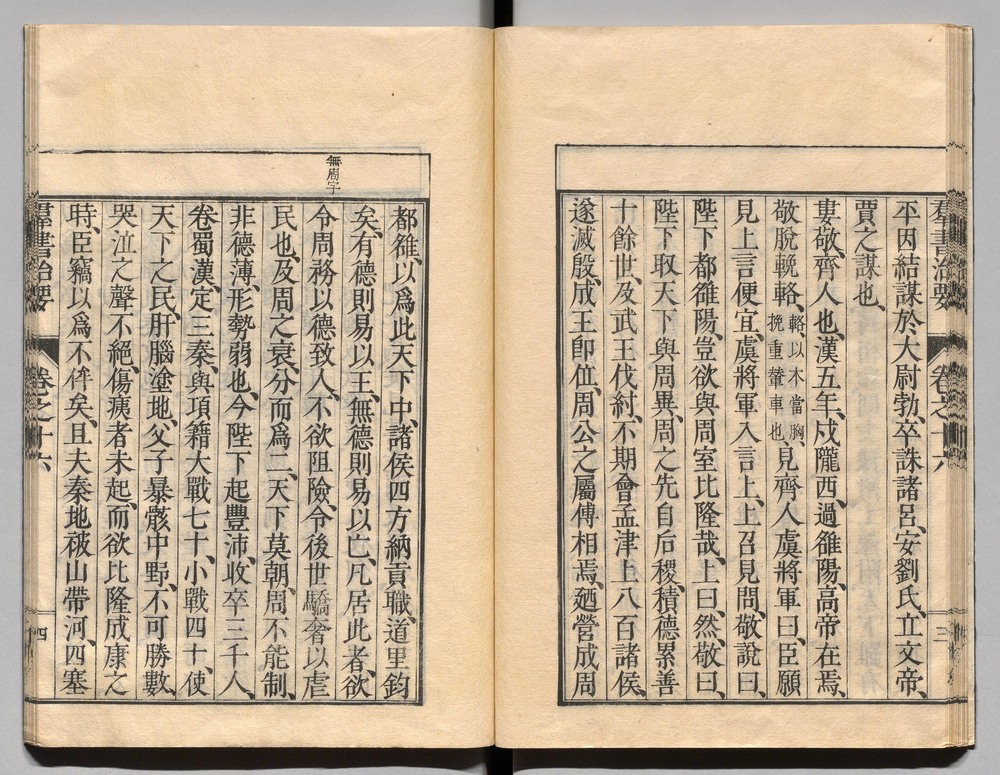 羣書治要 卷之十六 三
平因結謀於大尉勃、卒誅諸呂、安劉氏、立文帝、
賈之謀也、
婁敬、齊人也、漢五年、戍隴西、過雒陽、高帝在焉、
敬脫輓輅、輅、以木當胸、挽重輦車也、見齊人虞將軍曰、臣願
見上言便宜、虞將軍入言上、上召見問、敬說曰、
陛下都雒陽、豈欲與周室比隆哉、上曰、然、敬曰、
陛下取天下與周異、周之先自后稷、積德累善
十餘世、及武王伐紂、不期會孟津上八百諸侯、
遂滅殷、成王卽位、周公之屬傅相焉、廼營成周
無廟字
都雒、以爲此天下中諸侯四方納貢職、道里鈞
矣、有德則易以王、無德則易以亡、凡居此者、欲
令周務以德致人、不欲阻險、令後世驕奢以虐
民也、及周之衰、分而爲二、天下莫朝、周不能制、
非德薄、形勢弱也、今陛下起豐沛、收卒三千人、
卷蜀漢、定三秦、與項籍大戰七十、小戰四十、使
天下之民、肝腦塗地、父子暴骸中野、不可勝數、
哭泣之聲不絕、傷痍者未起、而欲比隆成康之
時、臣竊以爲不侔矣、且夫秦地被山帶河、四塞
羣書治要 卷之十六 四